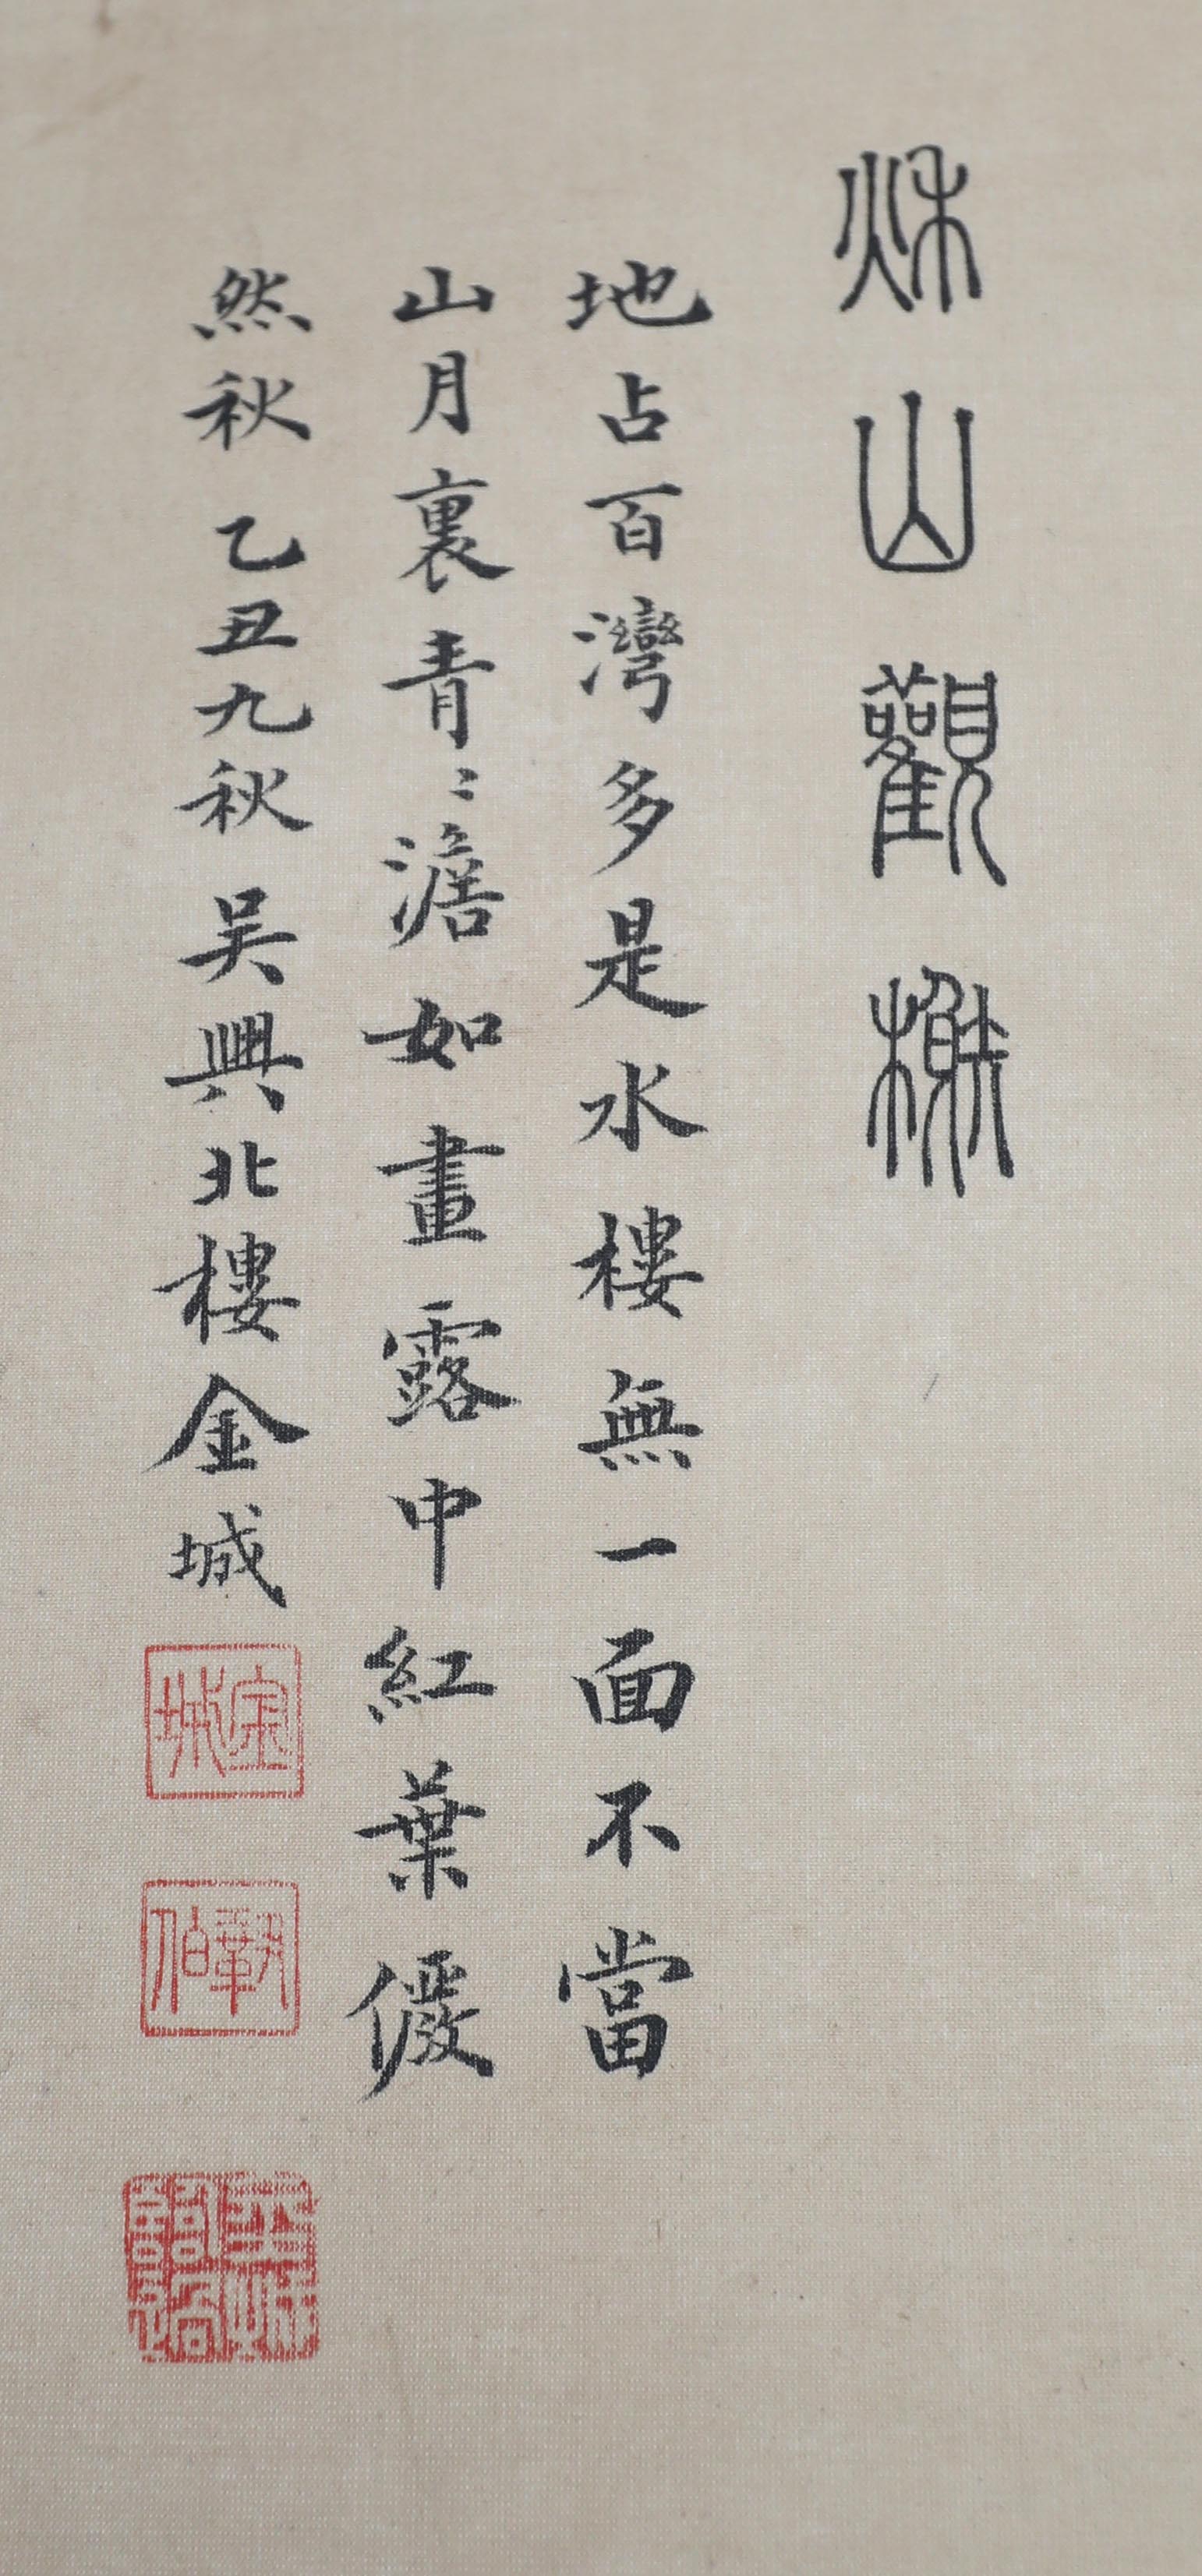 秋山觀榭
地占百灣多是水樓無一面不當
山月裏青〻澹如畫露中紅葉儼
然秋 乙丑九秋 吴興北樓金城
金城
鞏伯